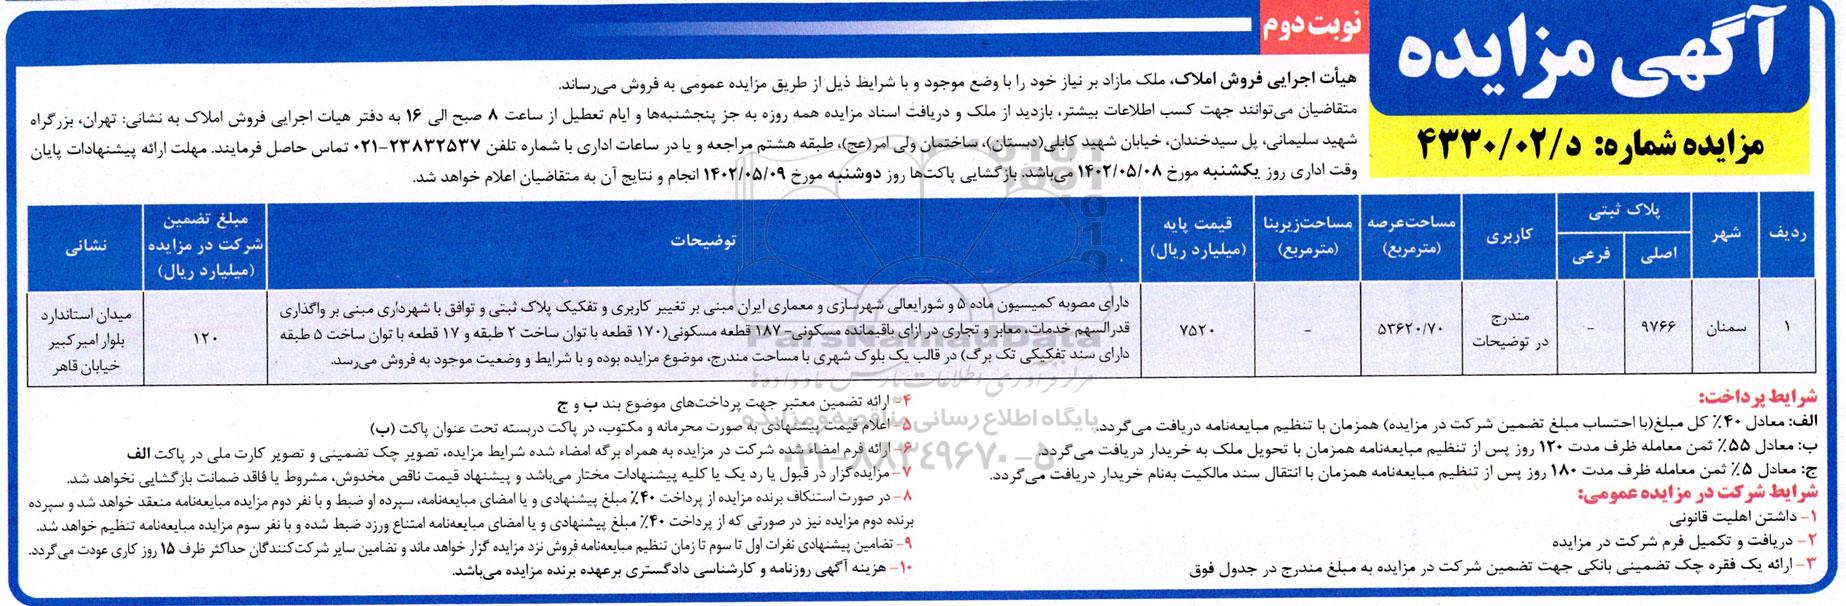 آگهی مزایده
نوبت دوم
مزایده شماره: د/۴۳۳۰/۰۲
هیأت اجرایی فروش املاک، ملک مازاد بر نیاز خود را با وضع موجود و با شرایط ذیل از طریق مزایده عمومی به فروش می‌رساند.
متقاضیان می‌توانند جهت کسب اطلاعات بیشتر، بازدید از ملک و دریافت اسناد مزایده همه روزه به جز پنجشنبه‌ها و ایام تعطیل از ساعت ۸ صبح الی ۱۶ به دفتر هیات اجرایی فروش املاک به نشانی: تهران، بزرگراه
شهید سلیمانی، پل سیدخندان، خیابان شهید کابلی(دبستان)، ساختمان ولی امر(عج)، طبقه هشتم مراجعه و یا در ساعات اداری با شماره تلفن ۲۳۸۳۲۵۳۷-۰۲۱ تماس حاصل فرمایند. مهلت ارائه پیشنهادات پایان
وقت اداری روز یکشنبه مورخ ۱۴۰۲/۰۵/۰۸ می‌باشد. بازگشایی پاکت‌ها روز دوشنبه مورخ ۱۴۰۲/۰۵/۰۹ انجام و نتایج آن به متقاضیان اعلام خواهد شد.
ردیف
شهر
پلاک ثبتی
اصلی
فرعی
کاربری
مساحت‌عرصه
(مترمربع)
مساحت‌زیربنا
(مترمربع)
قیمت پایه
(میلیارد ریال)
توضیحات
مبلغ تضمین
شرکت در مزایده
(میلیارد ریال)
نشانی
۱
سمنان
۹۷۶۶
-
مندرج
در توضیحات
۵۳۶۲۰/۷۰
-
۷۵۲۰
دارای مصوبه کمیسیون ماده ۵ و شورایعالی شهرسازی و معماری ایران مبنی بر تغییر کاربری و تفکیک پلاک ثبتی و توافق با شهرداری مبنی بر واگذاری
قدرالسهم خدمات، معابر و تجاری در ازای باقیمانده مسکونی- ۱۸۷ قطعه مسکونی(۱۷۰ قطعه با توان ساخت ۲ طبقه و ۱۷ قطعه با توان ساخت ۵ طبقه
دارای سند تفکیکی تک برگ) در قالب یک بلوک شهری با مساحت مندرج، موضوع مزایده بوده و با شرایط و وضعیت موجود به فروش می‌رسد.
۱۲۰
میدان استاندارد
بلوار امیرکبیر
خیابان قاهر
ParsNamadData
مرکز فرآوری اطلاعات پارس نماد داده‌ها
پایگاه اطلاع رسانی مناقصه و مزایده
۰۲۱-۸۸۳۴۹۶۷۰-۵
شرایط پرداخت:
الف: معادل ۴۰٪ کل مبلغ(با احتساب مبلغ تضمین شرکت در مزایده) همزمان با تنظیم مبایعه‌نامه دریافت می‌گردد.
ب: معادل ۵۵٪ ثمن معامله ظرف مدت ۱۲۰ روز پس از تنظیم مبایعه‌نامه همزمان با تحویل ملک به خریدار دریافت می‌گردد.
ج: معادل ۵٪ ثمن معامله ظرف مدت ۱۸۰ روز پس از تنظیم مبایعه‌نامه همزمان با انتقال سند مالکیت به‌نام خریدار دریافت می‌گردد.
شرایط شرکت در مزایده عمومی:
۱- داشتن اهلیت قانونی
۲- دریافت و تکمیل فرم شرکت در مزایده
۳- ارائه یک فقره چک تضمینی بانکی جهت تضمین شرکت در مزایده به مبلغ مندرج در جدول فوق
۴- ارائه تضمین معتبر جهت پرداخت‌های موضوع بند ب و ج
۵- اعلام قیمت پیشنهادی به صورت محرمانه و مکتوب، در پاکت دربسته تحت عنوان پاکت (ب)
۶- ارائه فرم امضاء شده شرکت در مزایده به همراه برگه امضاء شده شرایط مزایده، تصویر چک تضمینی و تصویر کارت ملی در پاکت الف
۷- مزایده‌گزار در قبول یا رد یک یا کلیه پیشنهادات مختار می‌باشد و پیشنهاد قیمت ناقص مخدوش، مشروط یا فاقد ضمانت بازگشایی نخواهد شد.
۸- در صورت استنکاف برنده مزایده از پرداخت ۴۰٪ مبلغ پیشنهادی و یا امضای مبایعه‌نامه، سپرده او ضبط و با نفر دوم مزایده مبایعه‌نامه منعقد خواهد شد و سپرده
برنده دوم مزایده نیز در صورتی که از پرداخت ۴۰٪ مبلغ پیشنهادی و یا امضای مبایعه‌نامه امتناع ورزد ضبط شده و با نفر سوم مزایده مبایعه‌نامه تنظیم خواهد شد.
۹- تضامین پیشنهادی نفرات اول تا سوم تا زمان تنظیم مبایعه‌نامه فروش نزد مزایده گزار خواهد ماند و تضامین سایر شرکت‌کنندگان حداکثر ظرف ۱۵ روز کاری عودت می‌گردد.
۱۰- هزینه آگهی روزنامه و کارشناسی دادگستری برعهده برنده مزایده می‌باشد.